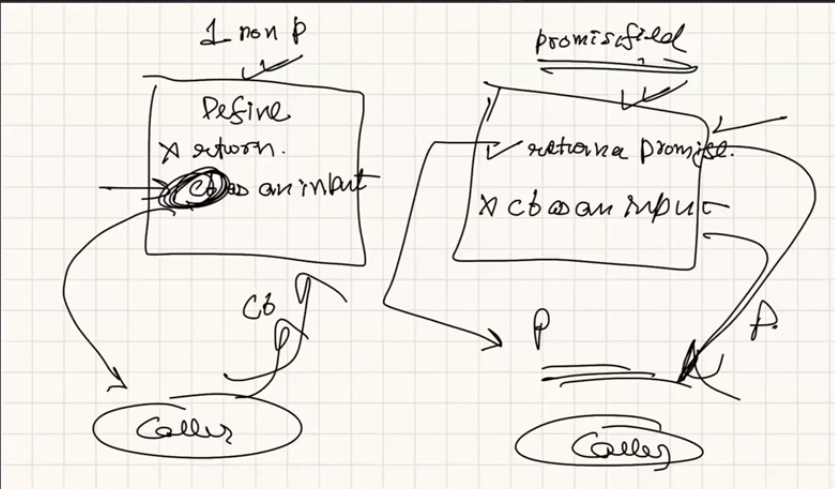 1 non p
Define
x return.
cb as an input
Cb
Caller
promisified
return a promise.
x cb as an input
P
P.
Caller